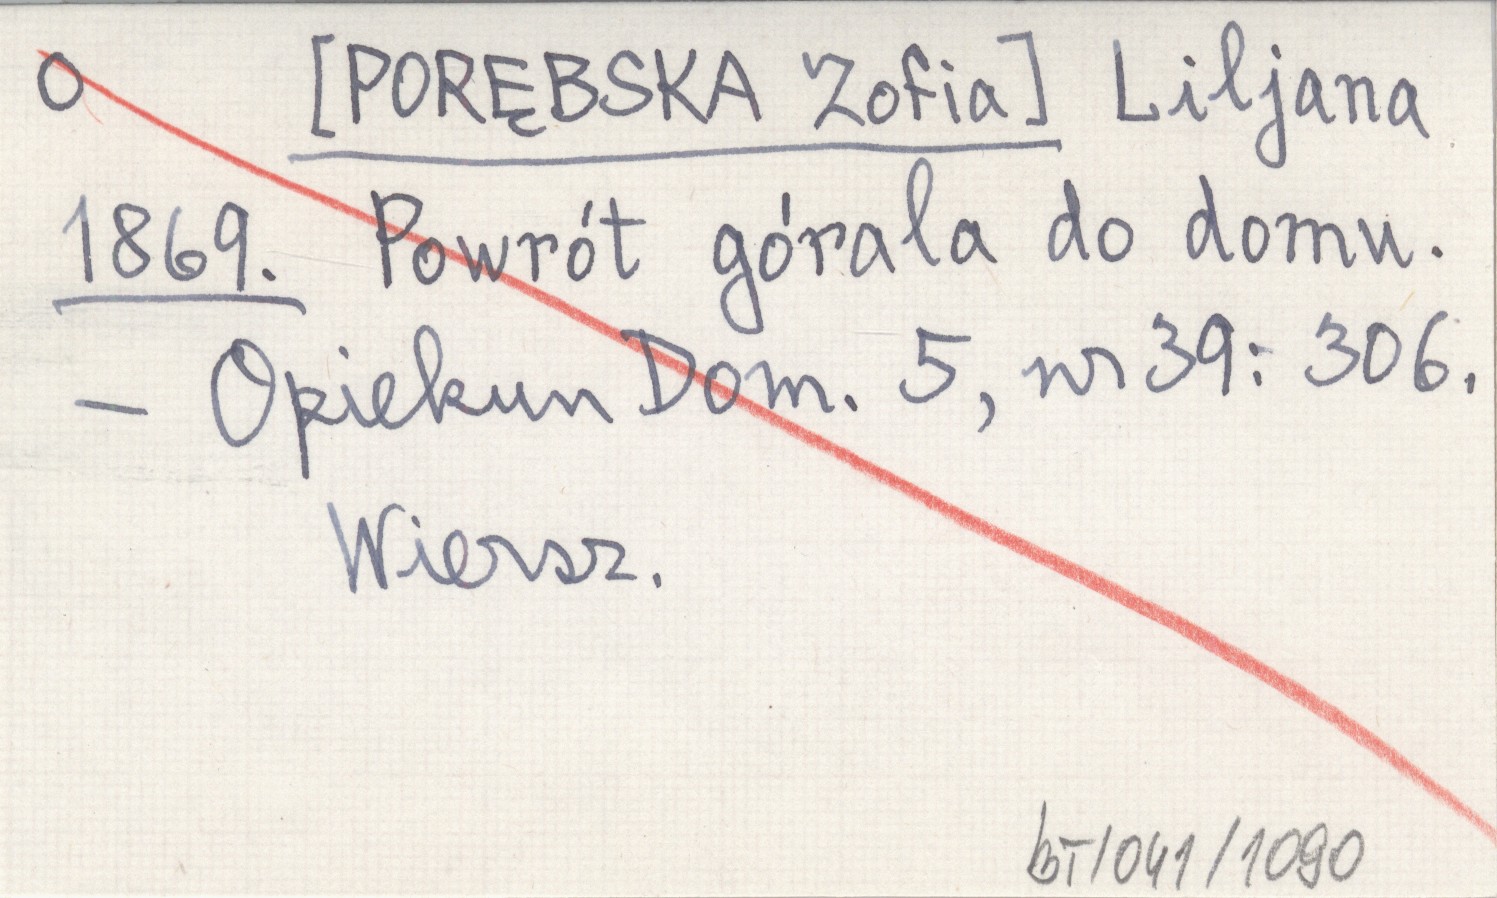 O [PORĘBSKA Zofia] Liljana
1869. Powrót górala do domu.
— Opiekun Dom. 5, nr 39: 306.
Wiersz.
bT/041/1090